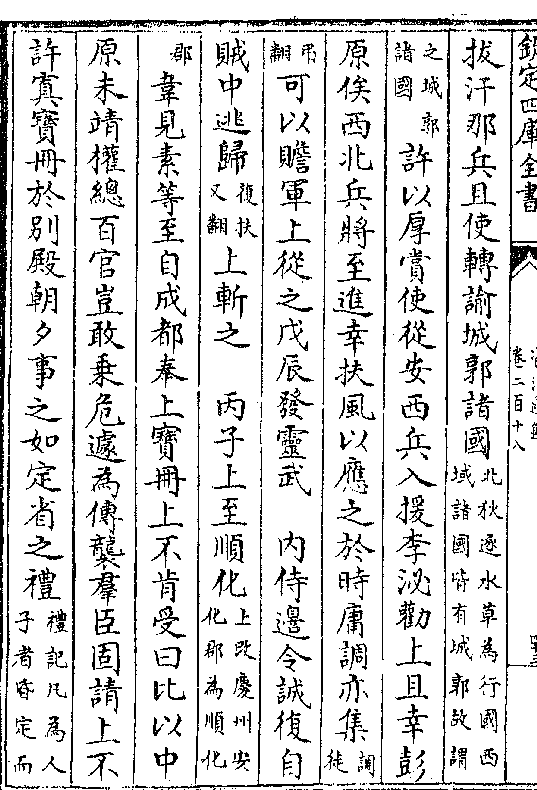 欽定四庫全書
卷二百十八
拔汗那兵且使轉諭城郭諸國北狄逐水草為行國西域諸國皆有城郭故謂
之城郭諸國許以厚賞使從安西兵入援李泌勸上且幸彭
原俟西北兵將至進幸扶風以應之於時庸調亦集調徒
弔翻可以贍軍上從之戊辰發靈武 内侍邉令誠復自
賊中逃歸復扶又翻上斬之 丙子上至順化上改慶州安化郡為順化
郡韋見素等至自成都奉上寶冊上不肯受曰比以中
原未靖權總百官豈敢乗危遽為傳襲羣臣固請上不
許寘寶冊於别殿朝夕事之如定省之禮禮記凡為人子者昏定而